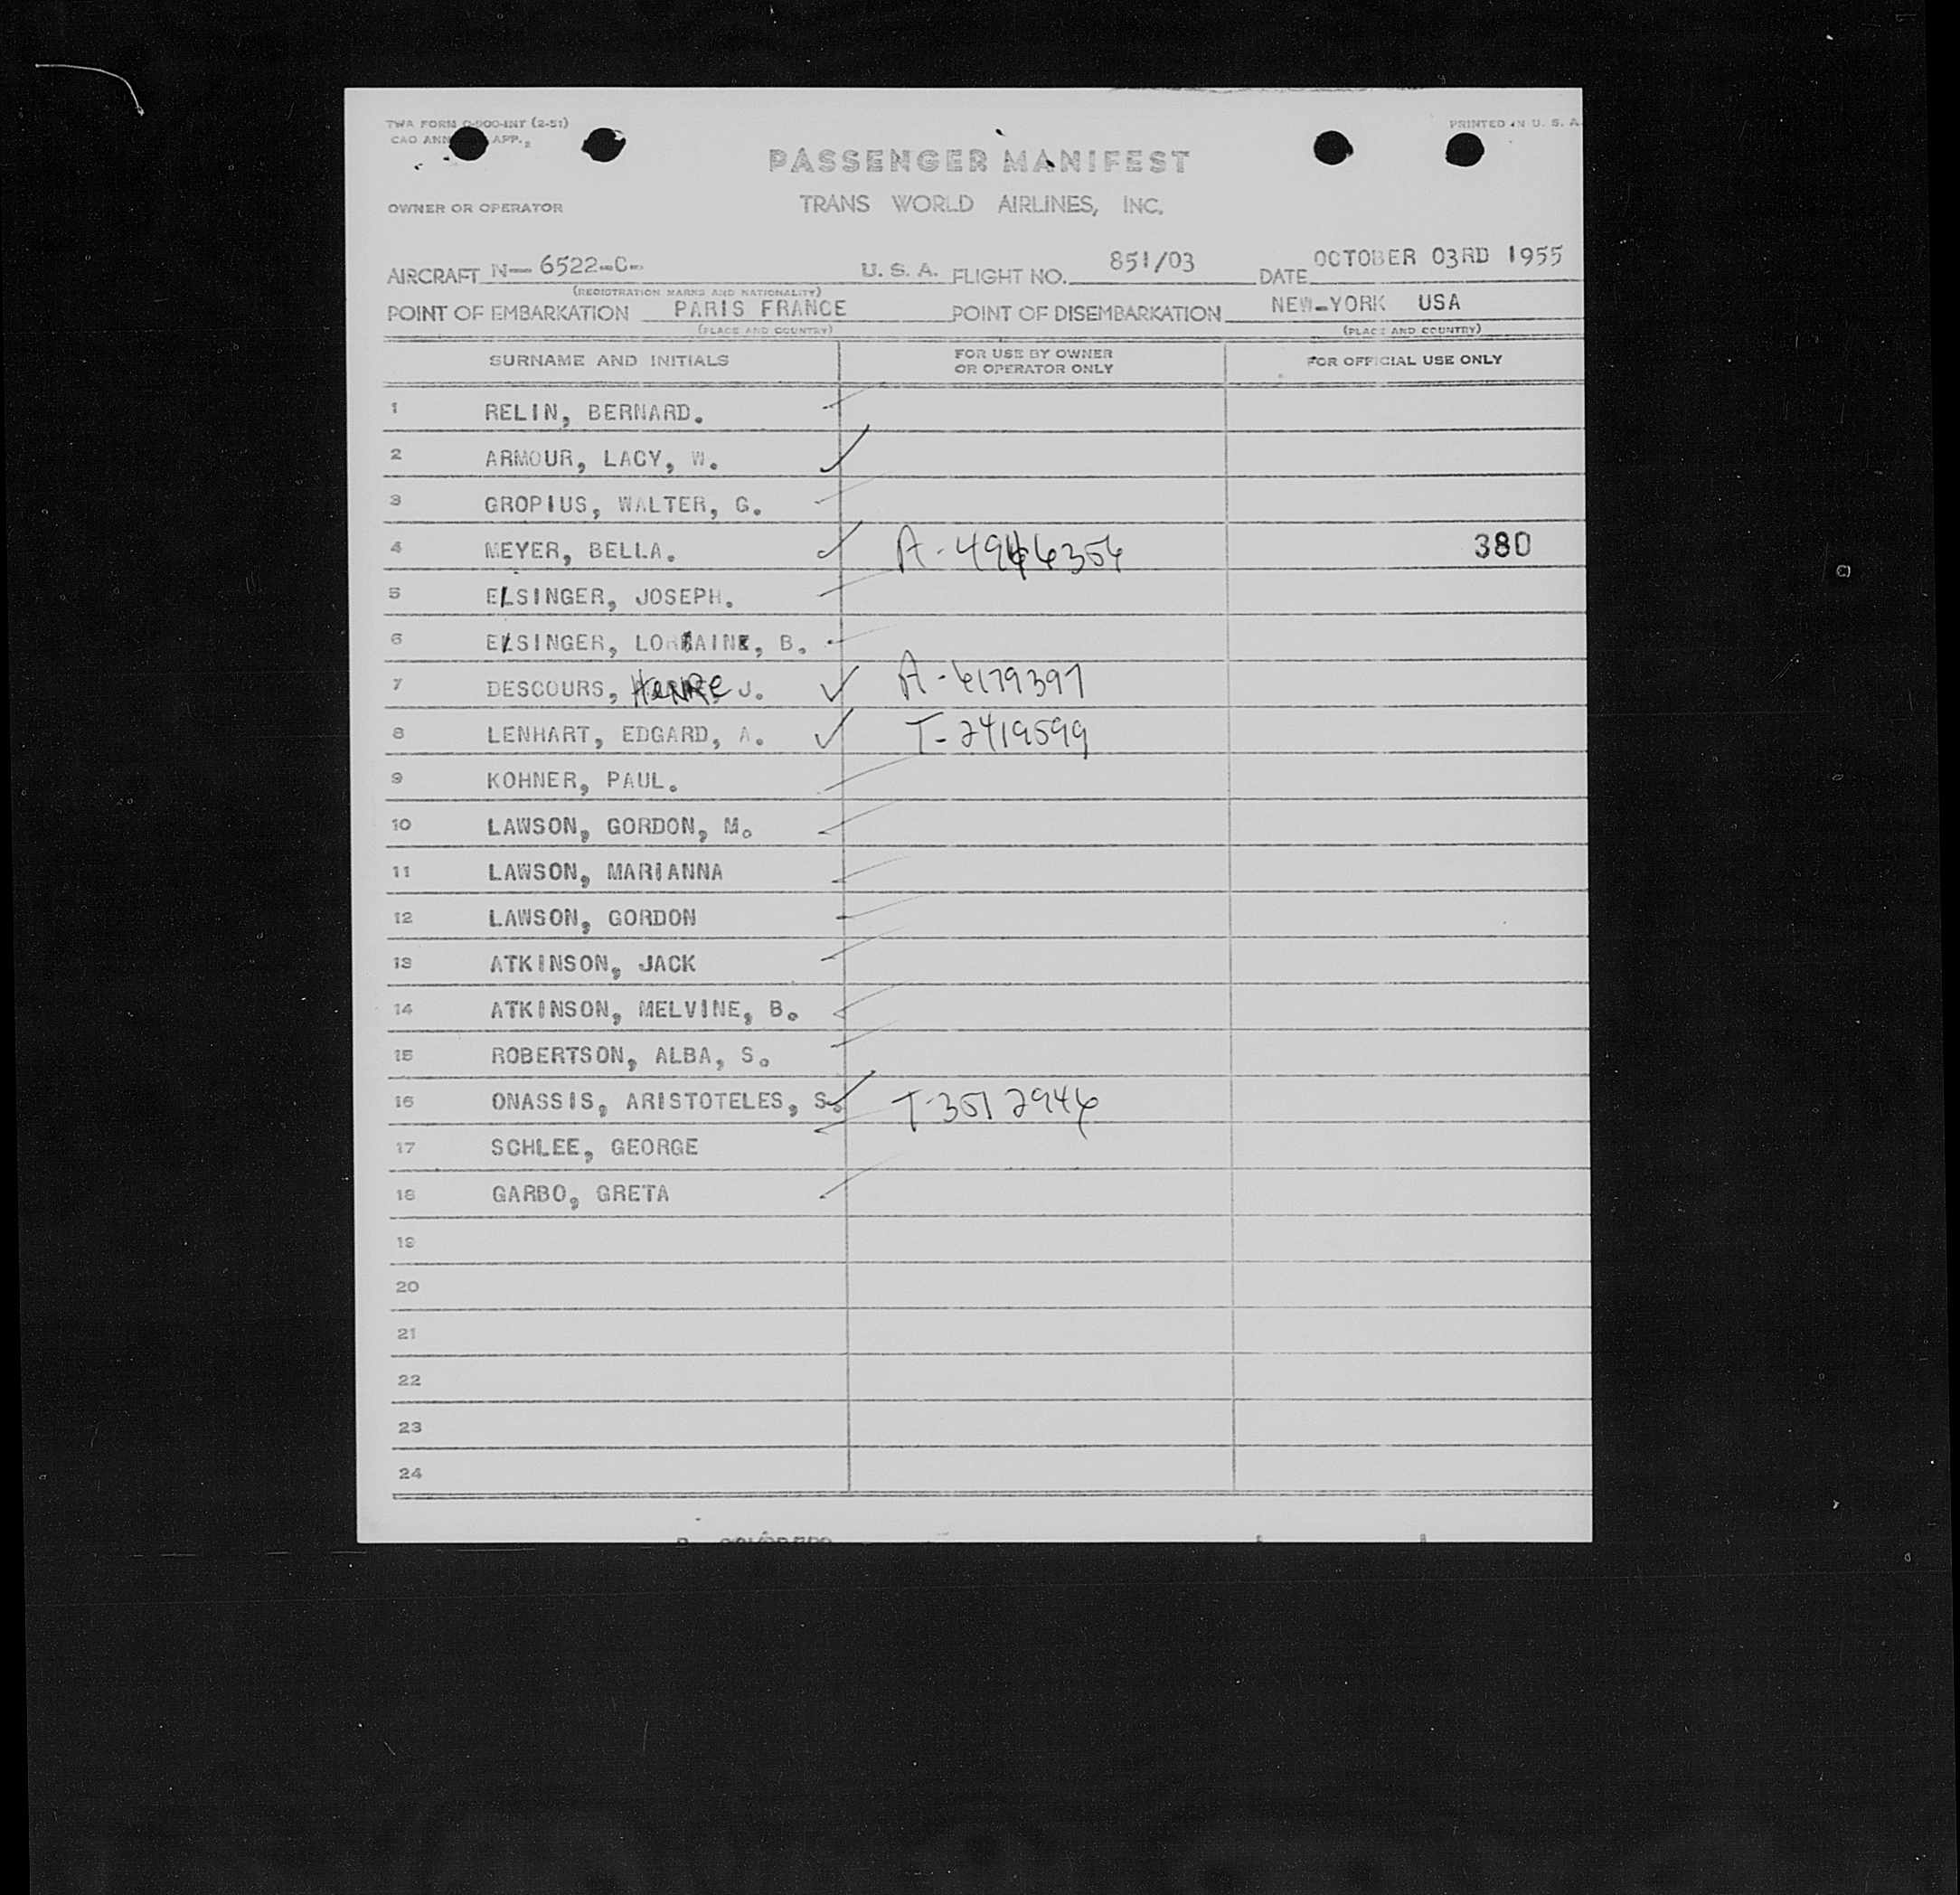 TWA FORM O-900-INT (2-51)
PRINTED IN U. S. A.
CAO ANN APP.
PASSENGER MANIFEST
OWNER OR OPERATOR TRANS WORLD AIRLINES, INC.
AIRCRAFT N-- 6522-C- U. S. A. FLIGHT NO. 851/03 DATE OCTOBER 03RD 1955
(REGISTRATION MARKS AND NATIONALITY)
POINT OF EMBARKATION PARIS FRANCE POINT OF DISEMBARKATION NEW-YORK USA
(PLACE AND COUNTRY) (PLACE AND COUNTRY)
SURNAME AND INITIALS FOR USE BY OWNER OR OPERATOR ONLY FOR OFFICIAL USE ONLY
1 RELIN, BERNARD.
2 ARMOUR, LACY, W.
3 GROPIUS, WALTER, G.
4 MEYER, BELLA. A-4946356 380
5 ELSINGER, JOSEPH.
6 ELSINGER, LORRAINE, B.
7 DESCOURS, HENRE J. A-6179397
8 LENHART, EDGARD, A. T-2419599
9 KOHNER, PAUL.
10 LAWSON, GORDON, M.
11 LAWSON, MARIANNA
12 LAWSON, GORDON
13 ATKINSON, JACK
14 ATKINSON, MELVINE, B.
15 ROBERTSON, ALBA, S.
16 ONASSIS, ARISTOTELES, S. T-3512946
17 SCHLEE, GEORGE
18 GARBO, GRETA
19
20
21
22
23
24